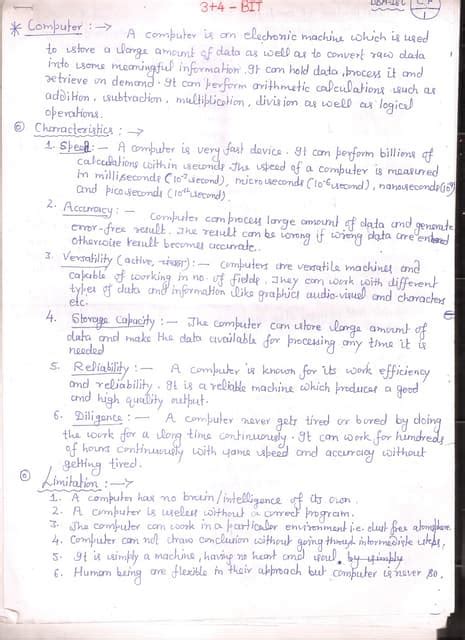 3+4 - BIT
* Computer : →
A computer is an electronic machine which is used
to store a large amount of data as well as to convert raw data
into some meaningful information. It can hold data, process it and
retrieve on demand. It can perform arithmetic calculations such as
addition, subtraction, multiplication, division as well as logical
operations.
Characteristics : →
1. Speed :— A computer is very fast device. It can perform billions of
calculations within seconds. The speed of a computer is measured
in milliseconds (10⁻³ second), microseconds (10⁻⁶ second), nanoseconds
and picoseconds (10⁻¹² second).
2. Accuracy :— Computer can process large amount of data and generate
error-free result. The result can be wrong if wrong data are entered
otherwise result becomes accurate.
3. Versatility (active, ) :— Computers are versatile machines and
capable of working in no. of fields. They can work with different
types of data and information like graphics audio-visual and characters
etc.
4. Storage Capacity :— The computer can store large amount of
data and make the data available for processing any time it is
needed
5. Reliability :— A computer is known for its work efficiency
and reliability. It is a reliable machine which produces a good
and high quality output.
6. Diligence :— A computer never gets tired or bored by doing
the work for a long time continuously. It can work for hundreds
of hours continuously with same speed and accuracy without
getting tired.
Limitation : →
1. A computer has no brain/intelligence of its own.
2. A computer is useless without a correct program.
3. The computer can work in a particular environment i.e. dust free atmosphere.
4. Computer can not draw conclusion without going through intermediate steps.
5. It is simply a machine, having no heart and soul. by simply
6. Human being are flexible in their approach but computer is never so.